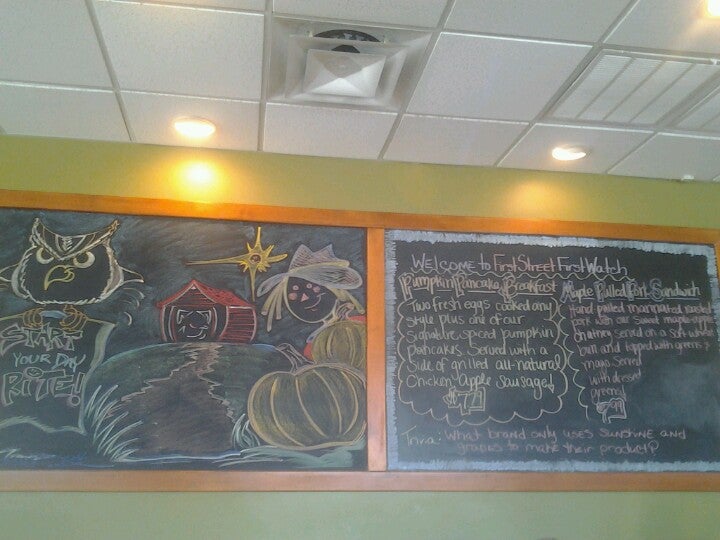 START
YOUR DAY
RITE!
WELCOME to First Street First Watch
Pumpkin Pancake Breakfast
Two fresh eggs cooked any
style plus one of our
signature spiced pumpkin
pancakes. Served with a
side of grilled all-natural
Chicken-Apple Sausage!
Maple Pulled Pork Sandwich
Hand pulled marinated roasted
pork with our sweet maple
served on a soft
bun and topped with greens &
mayo served
with
greens
Trivia: What brand only uses sunshine and
to make their product?